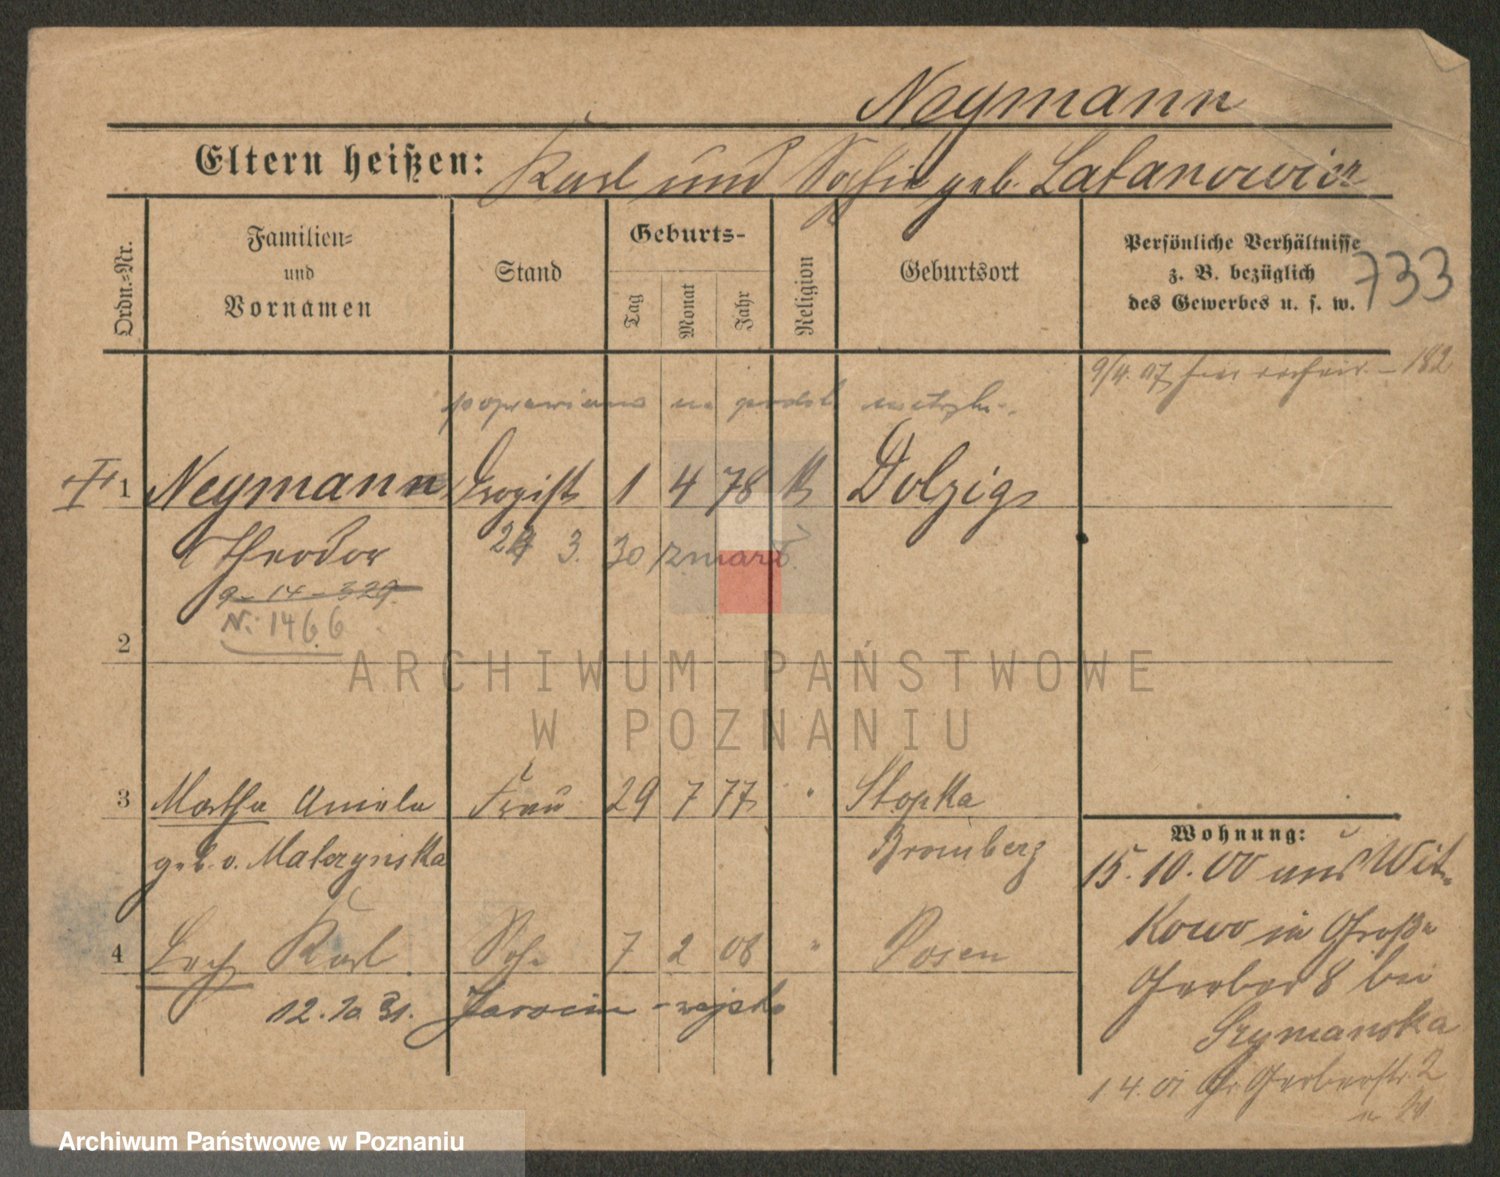 Neymann
Eltern heißen: Karl und Sophie geb. Latanowicz
Ordn.-Nr.
Familien-
und
Vornamen
Stand
Geburts-
Tag
Monat
Jahr
Religion
Geburtsort
Persönliche Verhältnisse
z. B. bezüglich
des Gewerbes u. s. w.
733
9/4. 07 182
poprawiono na podst. metryk
1 Neymann Drogist 1 4 78 k Dolzig
Theodor 3. 30 zmarł.
9-14-329
Nr. 1466
2
3 Martha Aniela Frau 29 7 77 " Stopka
geb. v. Malczynska Bromberg
4 Lech Karl Sohn 7 2 08 " Posen
12. 10 31. Jarocin - wojsko
Wohnung:
15. 10. 00 aus Wit-
kowo in Große
Gerber 8 bei
Szymanska
1 4. 01 Gr. Gerberstr. 2
ARCHIWUM PAŃSTWOWE
W POZNANIU
Archiwum Państwowe w Poznaniu